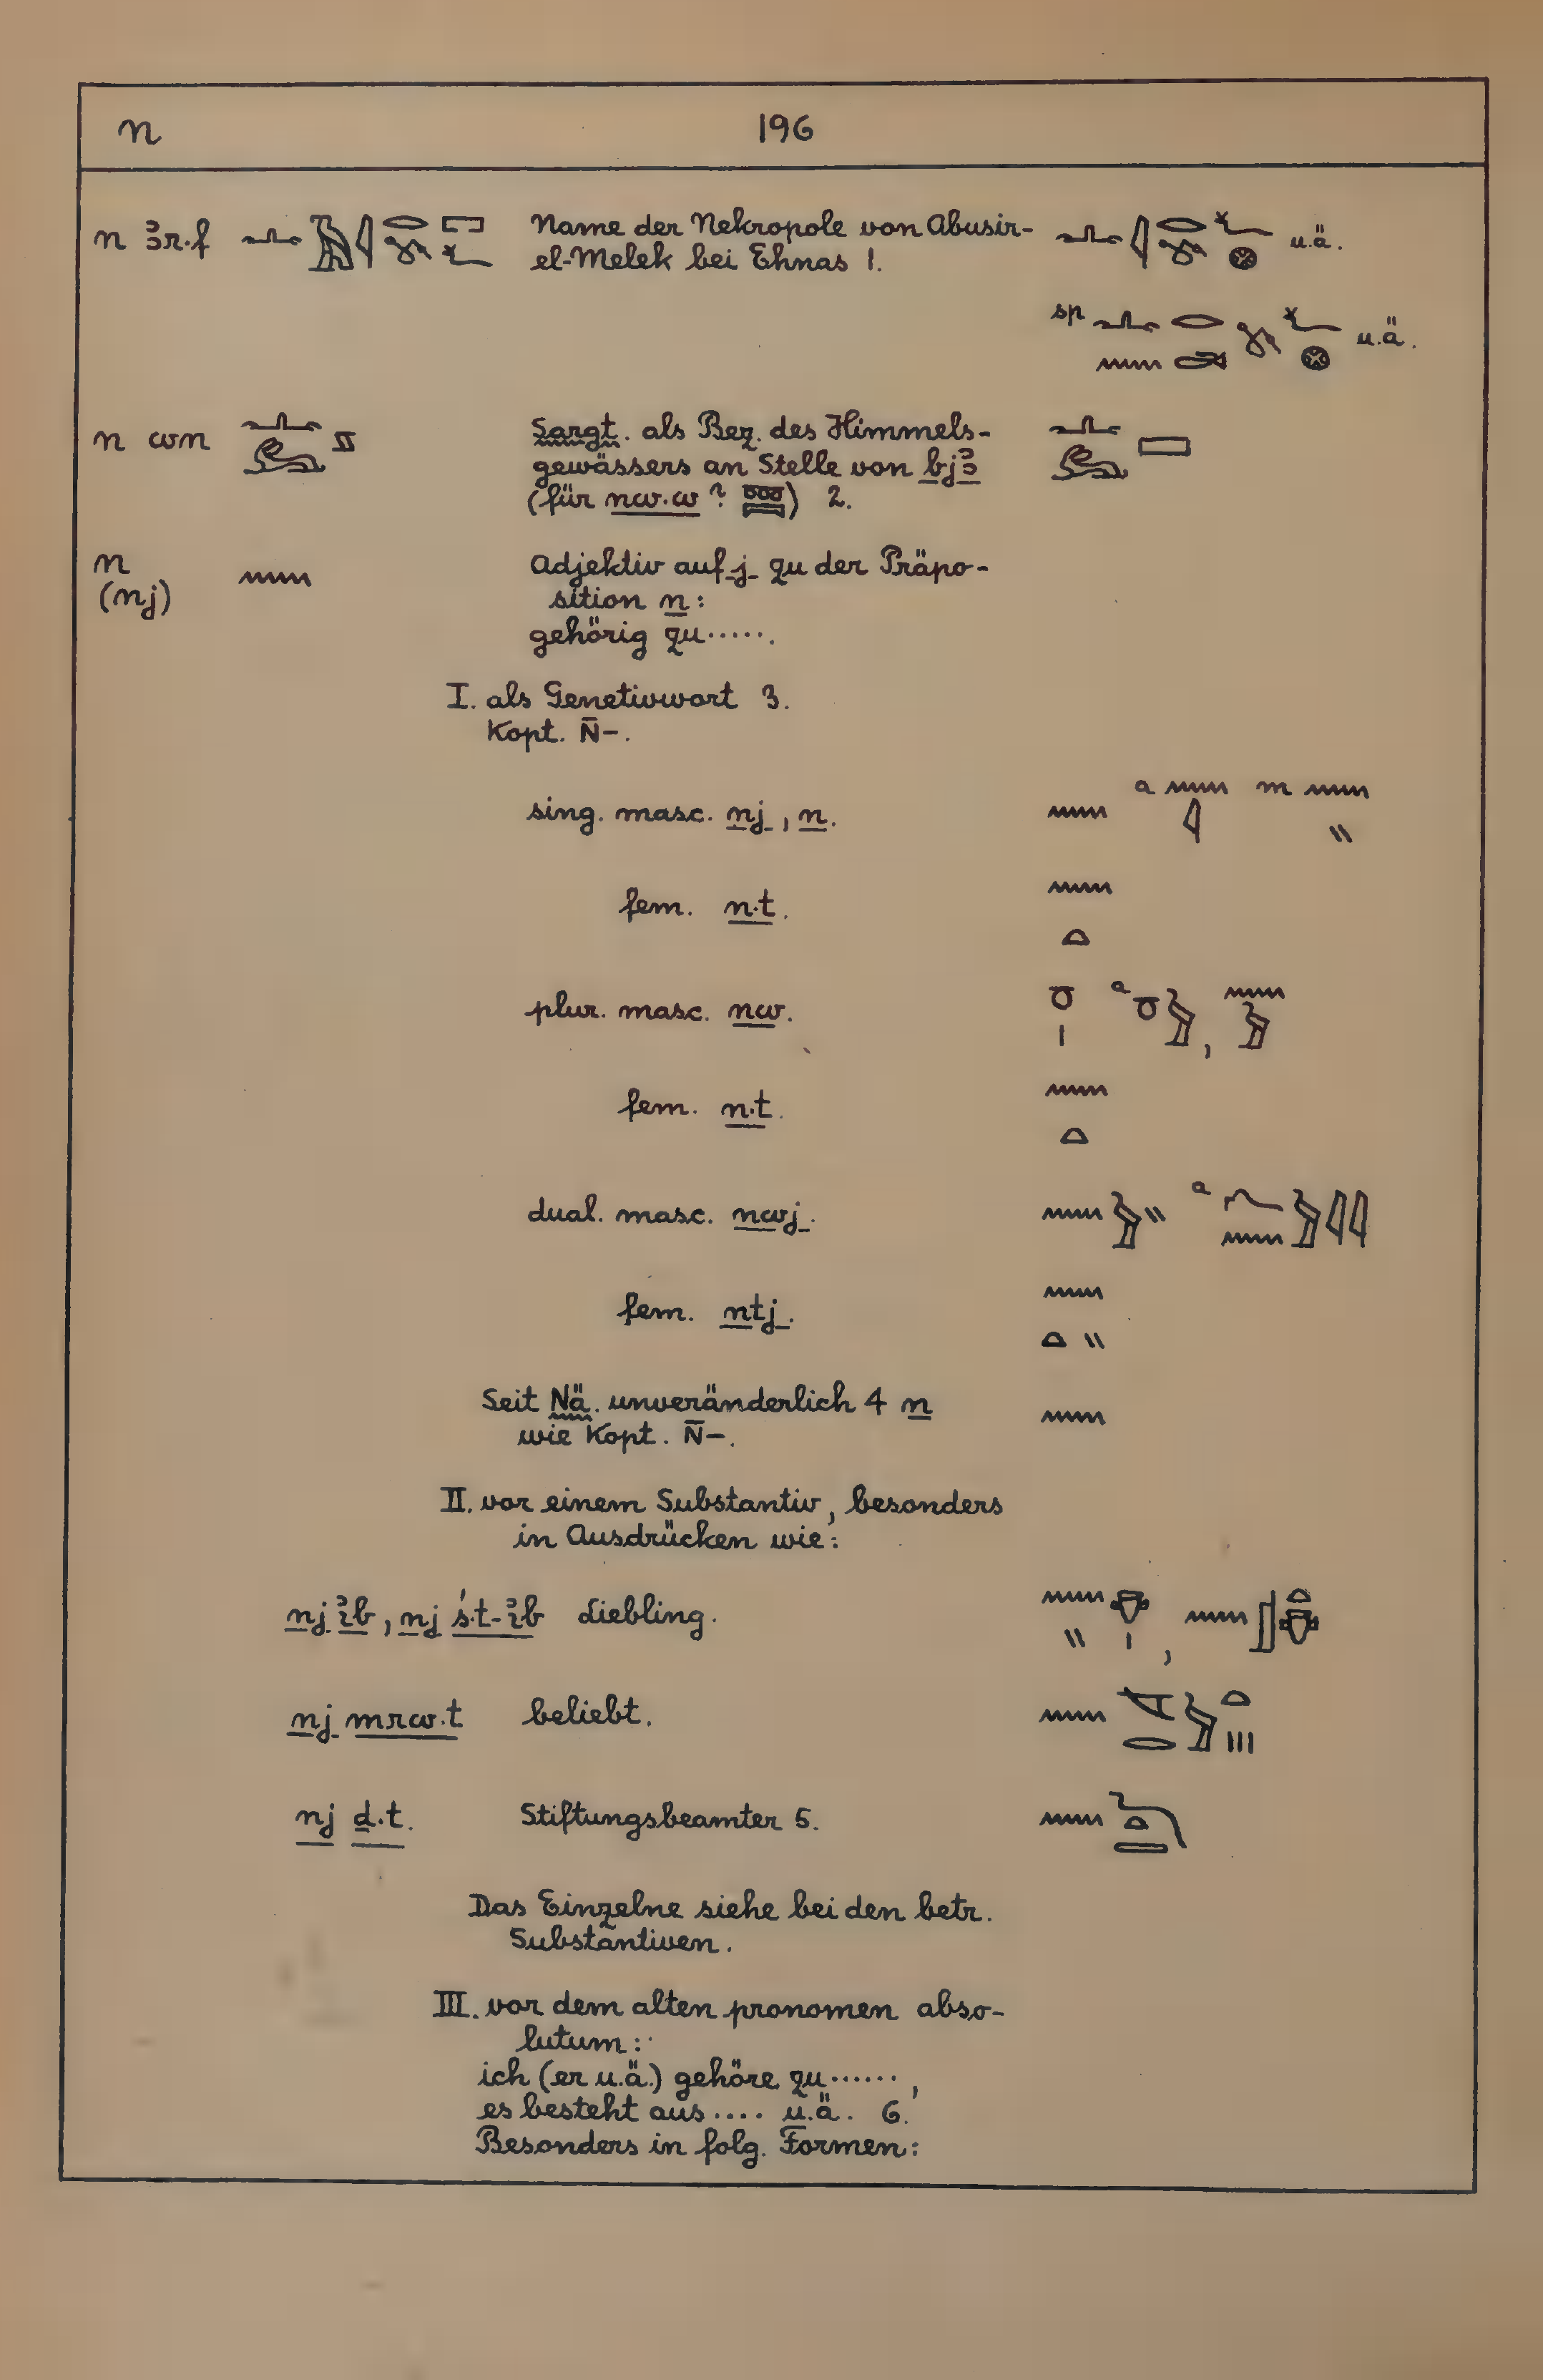 n 196
n ꜣr·f Name der Nekropole von Abusir- u.ä.
el-Melek bei Ehnas 1.
sp u.ä.
n wn Sargt. als Bez. des Himmels-
gewässers an Stelle von bjꜣ
(für nw·w ? ) 2.
n 𓈖 Adjektiv auf j zu der Präpo-
(nj) sition n:
gehörig zu ......
I. als Genetivwort 3.
Kopt. N̄-.
sing. masc. nj, n. 𓈖 a 𓈖𓇋 m 𓈖𓏭
fem. n·t. 𓈖𓏏
plur. masc. nw. 𓏌𓏤 a 𓏌𓅱, 𓈖𓅱
fem. n·t. 𓈖𓏏
dual. masc. nwj. 𓈖𓅱𓏭 a
fem. ntj. 𓈖𓏏𓏭
Seit Nä. unveränderlich 4 n 𓈖
wie Kopt. N̄-.
II. vor einem Substantiv, besonders
in Ausdrücken wie:
nj ı͗b, nj ś·t-ı͗b Liebling. 𓈖𓏭𓄣𓏤, 𓈖𓊨𓏏𓄣
nj mrw·t beliebt. 𓈖𓌸𓂋𓅱𓏏𓏥
nj ḏ·t. Stiftungsbeamter 5. 𓈖𓆓𓏏𓇾
Das Einzelne siehe bei den betr.
Substantiven.
III. vor dem alten pronomen abso-
lutum:
ich (er u.ä.) gehöre zu ......,
es besteht aus .... u.ä. 6.
Besonders in folg. Formen: